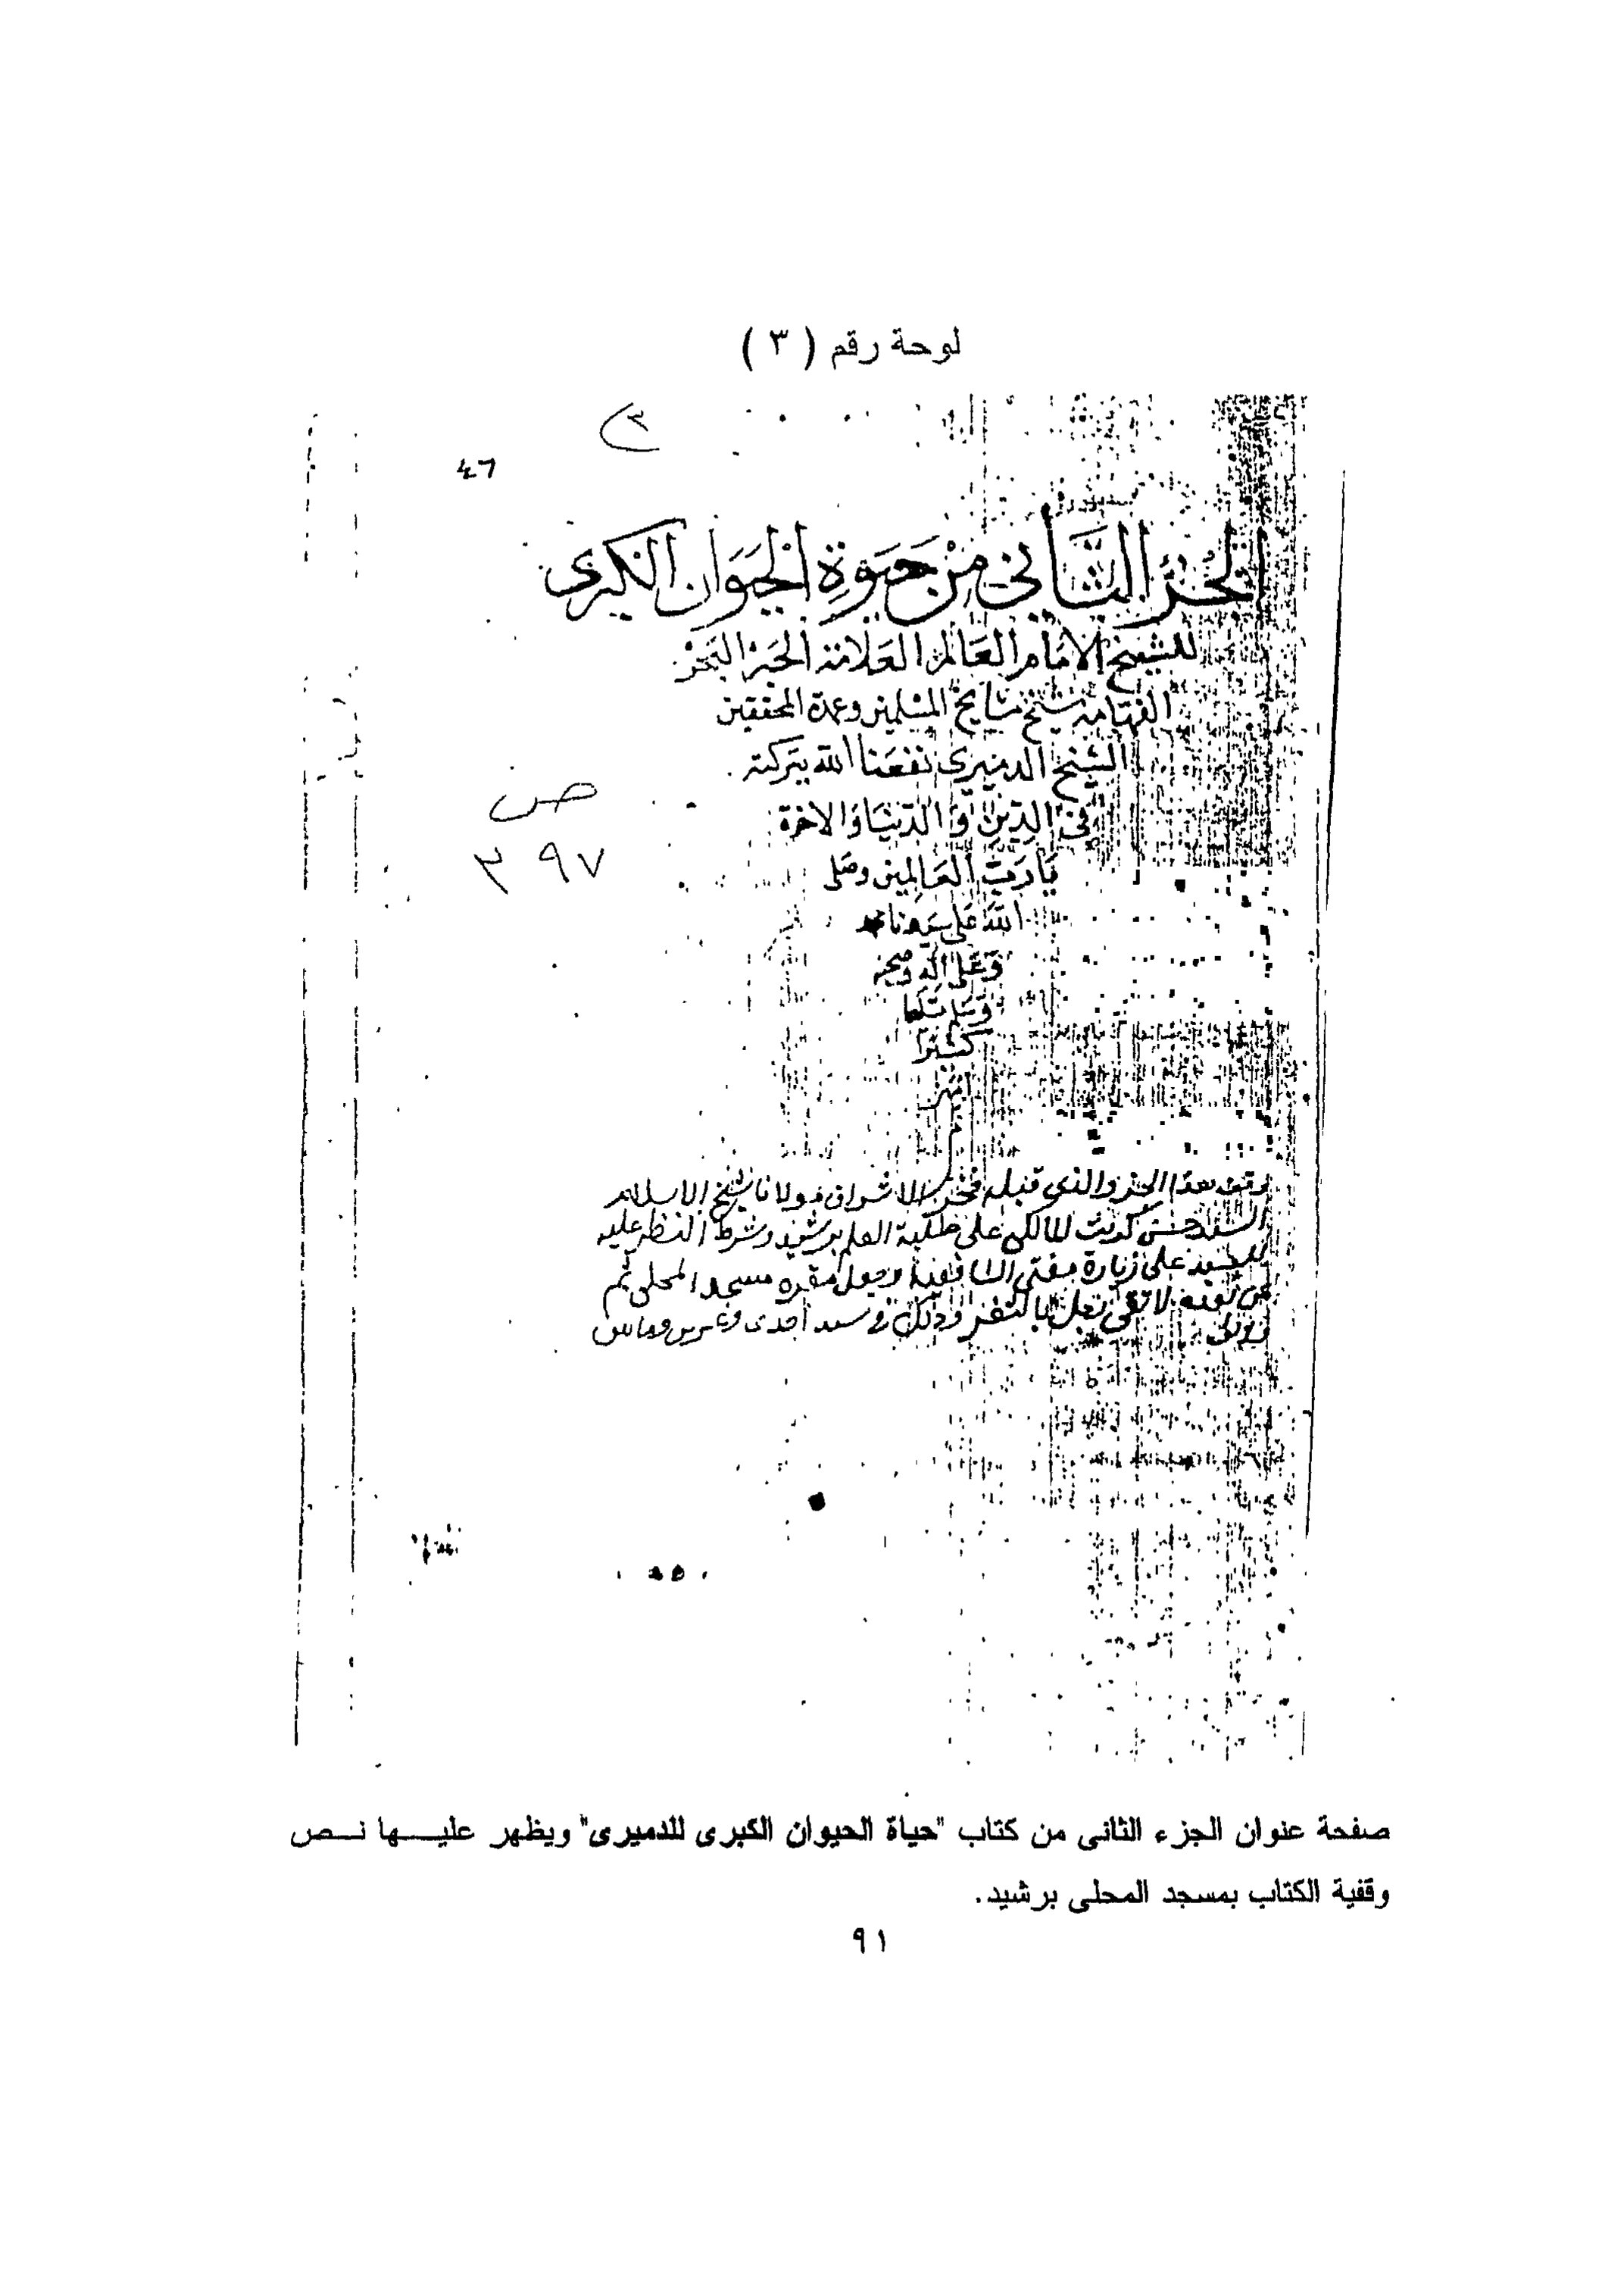 لوحة رقم ( ٣ )
٣
٤٦
الجزء الثاني من حيوة الحيوان الكبرى
للشيخ الامام العالم العلامة الحبر البحر
الفهامة شيخ مشايخ المسلمين وعمدة المحققين
الشيخ الدميرى نفعنا الله ببركته
في الدين والدنيا والاخرة
يا رب العالمين وصلى
الله على سيدنا محمد
وعلى اله وصحبه
وسلم تسليما
كثيرا
امين
ص
٣٩٧
وقف هذا الجزء والذي قبله فخر الاشراف مولانا شيخ الاسلام
السيد حسن كريت المالكى على طلبة العلم برشيد وشرط النظر عليه
للسيد على زيارة مفتى الشافعية وجعل مقره مسجد المحلى ثم
لاتقى رجل بالثغر وذلك في سنه احدى وعشرين وماتين
صفحة عنوان الجزء الثانى من كتاب "حياة الحيوان الكبرى للدميرى" ويظهر عليها نص
وقفية الكتاب بمسجد المحلى برشيد.
٩١